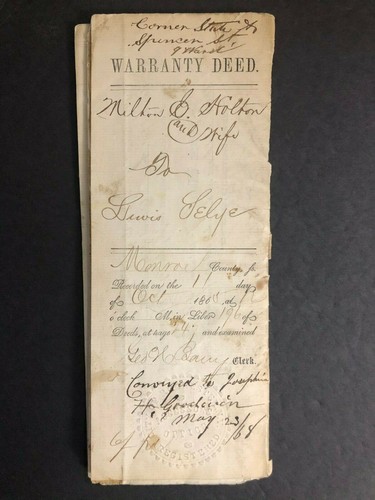 Corner State &
Spencer St,
9 Ward
WARRANTY DEED.
Milton C. Holton
and Wife
To
Lewis Selye
Monroe County, ss.
Recorded on the day
of Oct 186 at
o'clock M, in Liber of
Deeds, at page and examined
Geo H Barry Clerk.
Conveyed to Josephine
H. Goodwin
May 23/68